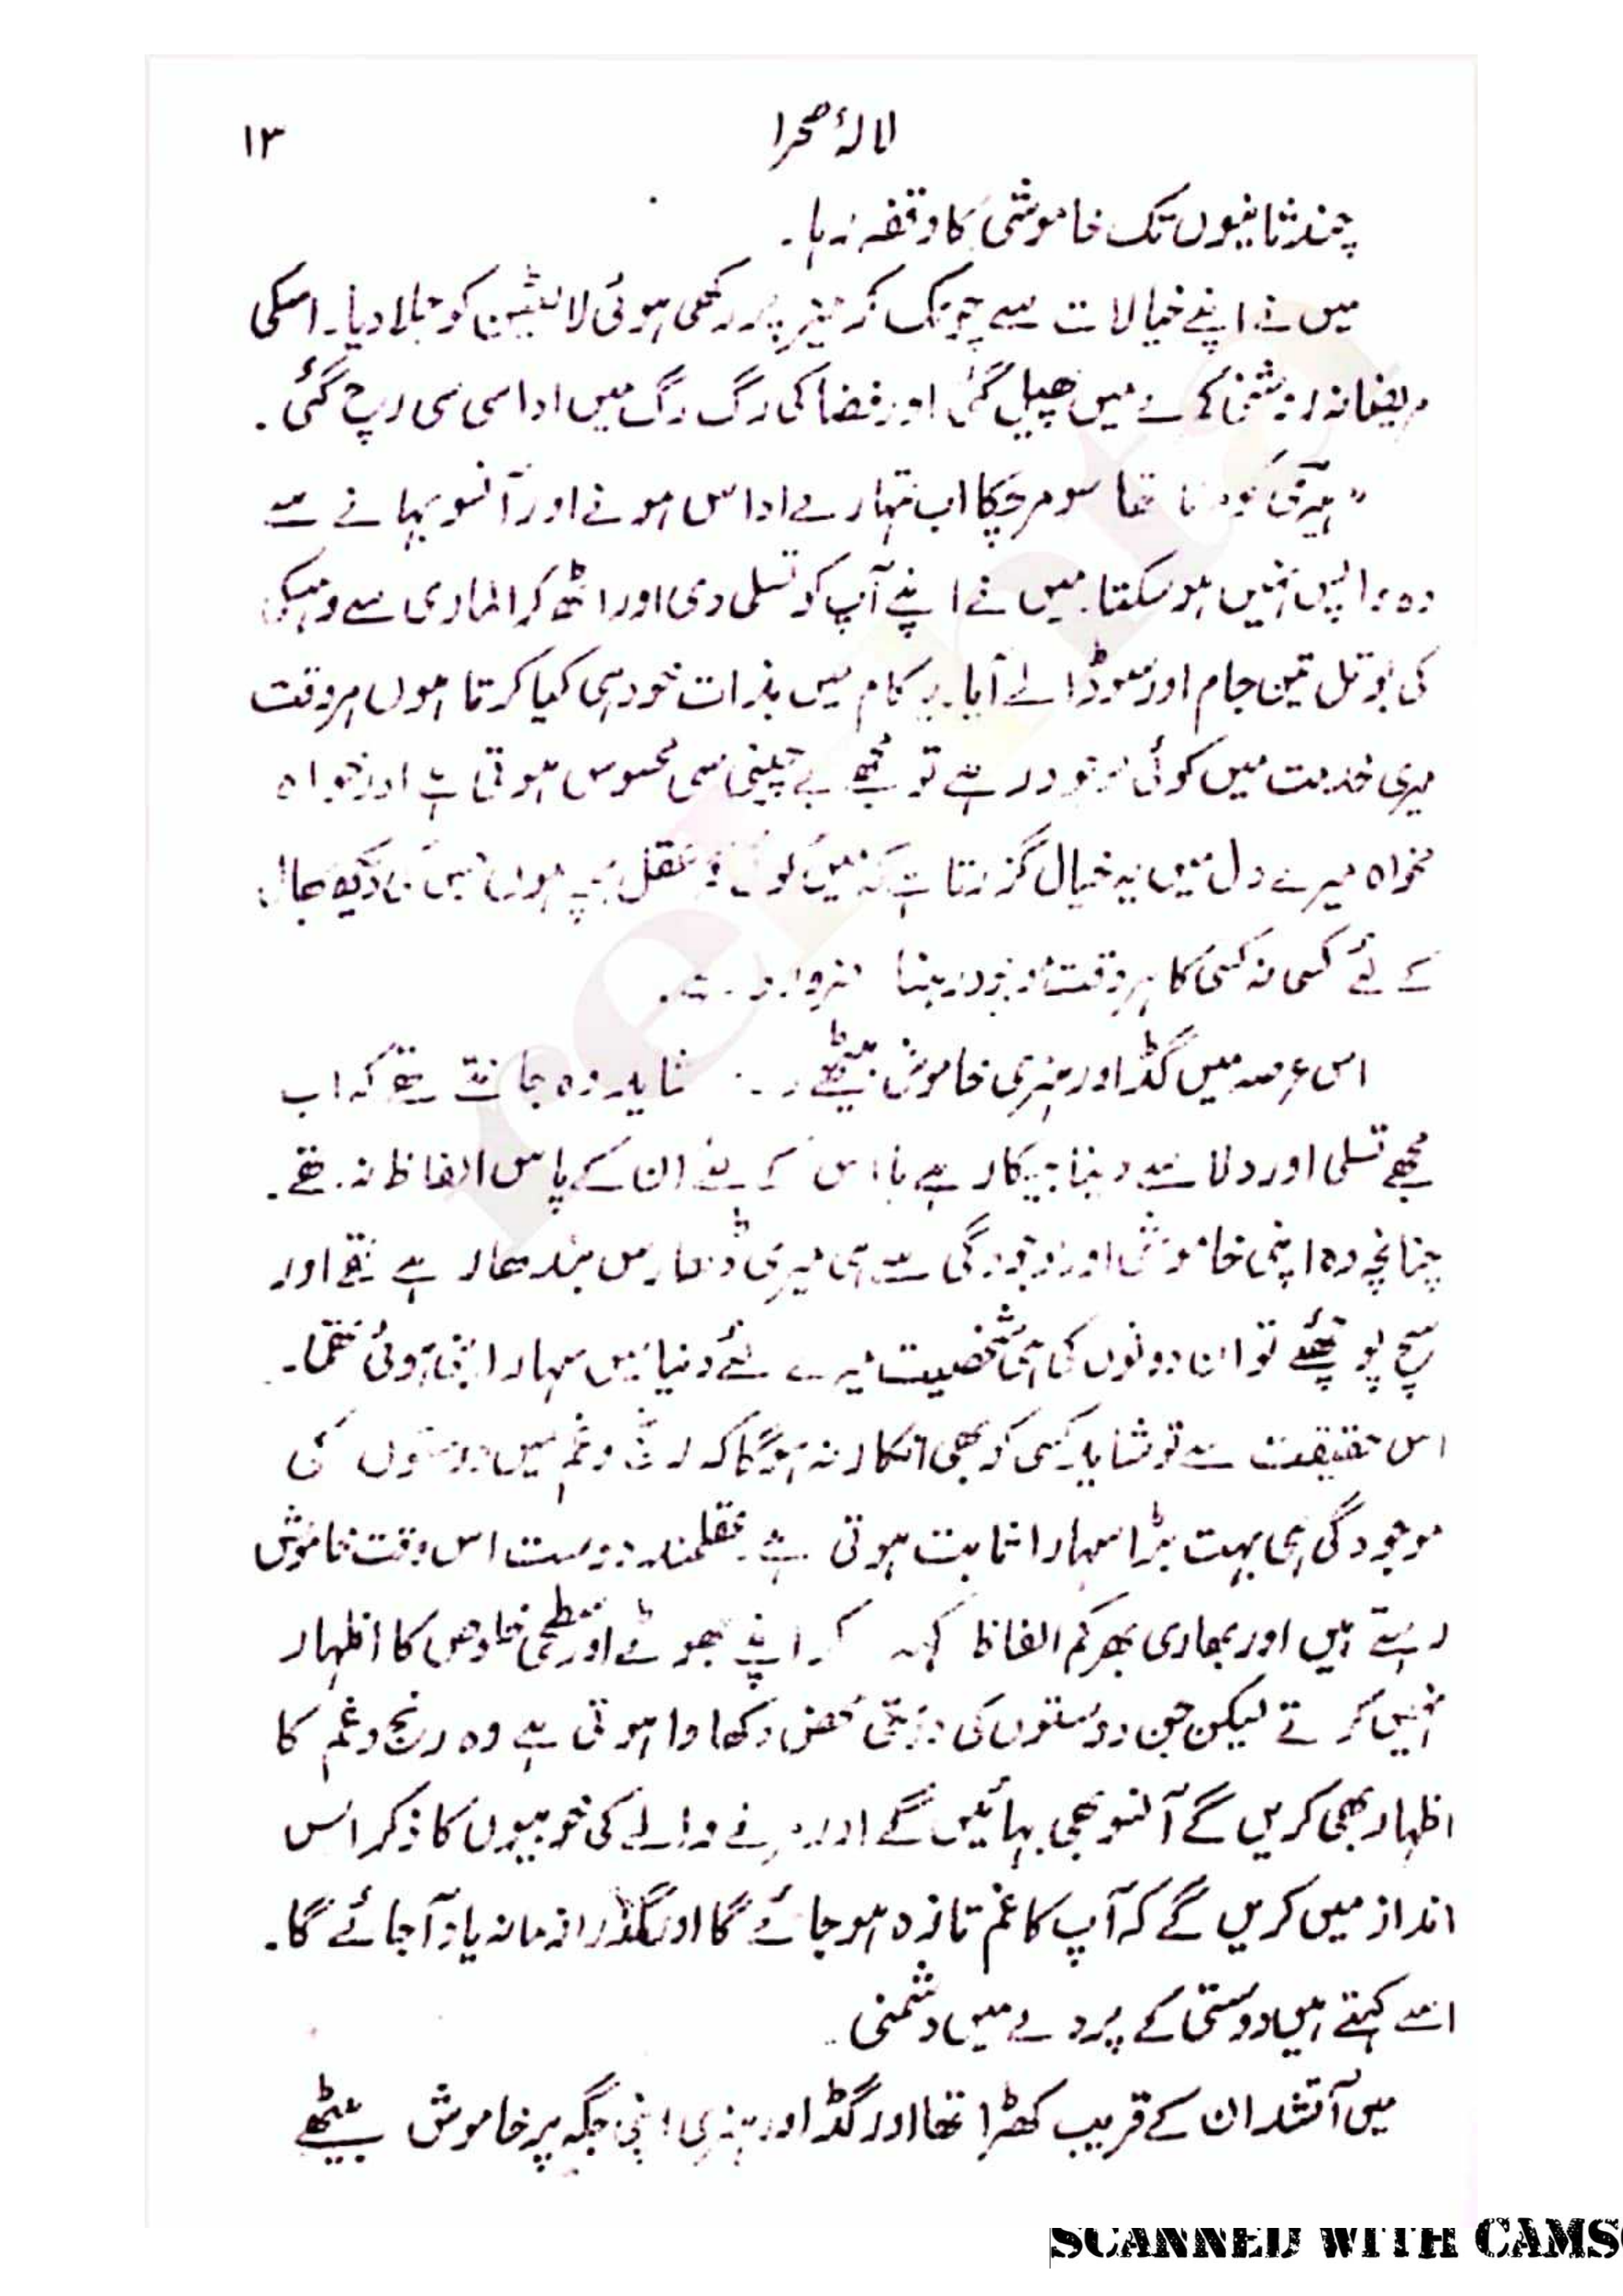 لالۂ صحرا ۱۳
چند ثانیوں تک خاموشی کا وقفہ رہا۔
میں نے اپنے خیالات سے چونک کر میز پر رکھی ہوئی لالٹین کو جلا دیا۔ اسکی
مریضانہ روشنی کمرے میں پھیل گئی اور فضا کی رگ رگ میں اداسی سی رچ گئی۔
"ہیری کو مرنا تھا سو مر چکا اب تمہارے اداس ہونے اور آنسو بہانے سے
وہ واپس نہیں ہو سکتا۔ میں نے اپنے آپ کو تسلی دی اور اٹھ کر الماری سے وہسکی
کی بوتل تین جام اور سوڈا لے آیا۔ یہ کام میں بذات خود ہی کیا کرتا ہوں ہر وقت
میری خدمت میں کوئی موجود رہے تو مجھے بے چینی سی محسوس ہوتی ہے اور خواہ
مخواہ میرے دل میں یہ خیال گزرتا ہے کہ میں کوئی عقل بچہ ہوں جس کی دیکھ بھال
کے لئے کسی نہ کسی کا ہر وقت موجود رہنا ضروری ہے۔
اس عرصہ میں گڈ اور ہنری خاموش بیٹھے رہے۔ شاید وہ جانتے تھے کہ اب
مجھے تسلی اور دلاسے دینا بیکار ہے یا اس کے لئے ان کے پاس الفاظ نہ تھے۔
چنانچہ وہ اپنی خاموشی اور موجودگی سے ہی میری ڈھارس بندھا رہے تھے اور
سچ پوچھئے تو ان دونوں کی ہی شخصیت میرے لئے دنیا میں سہارا بنی ہوئی تھی۔
اس حقیقت سے تو شاید کسی کو بھی انکار نہ ہوگا کہ رنج و غم میں دوستوں کی
موجودگی ہی بہت بڑا سہارا ثابت ہوتی ہے۔ عقلمند دوست اس وقت خاموش
رہتے ہیں اور بھاری بھرکم الفاظ کہہ کر اپنے جھوٹے اور سطحی خلوص کا اظہار
نہیں کرتے لیکن جن دوستوں کی دوستی محض دکھاوا ہوتی ہے وہ رنج و غم کا
اظہار بھی کریں گے آنسو بھی بہائیں گے اور مرنے والے کی خوبیوں کا ذکر اس
انداز میں کریں گے کہ آپ کا غم تازہ ہو جائے گا اور گذرا زمانہ یاد آجائے گا۔
اسے کہتے ہیں دوستی کے پردے میں دشمنی۔
میں آتشدان کے قریب کھڑا تھا اور گڈ اور ہنری اپنی جگہ پر خاموش بیٹھے
SCANNED WITH CAMS